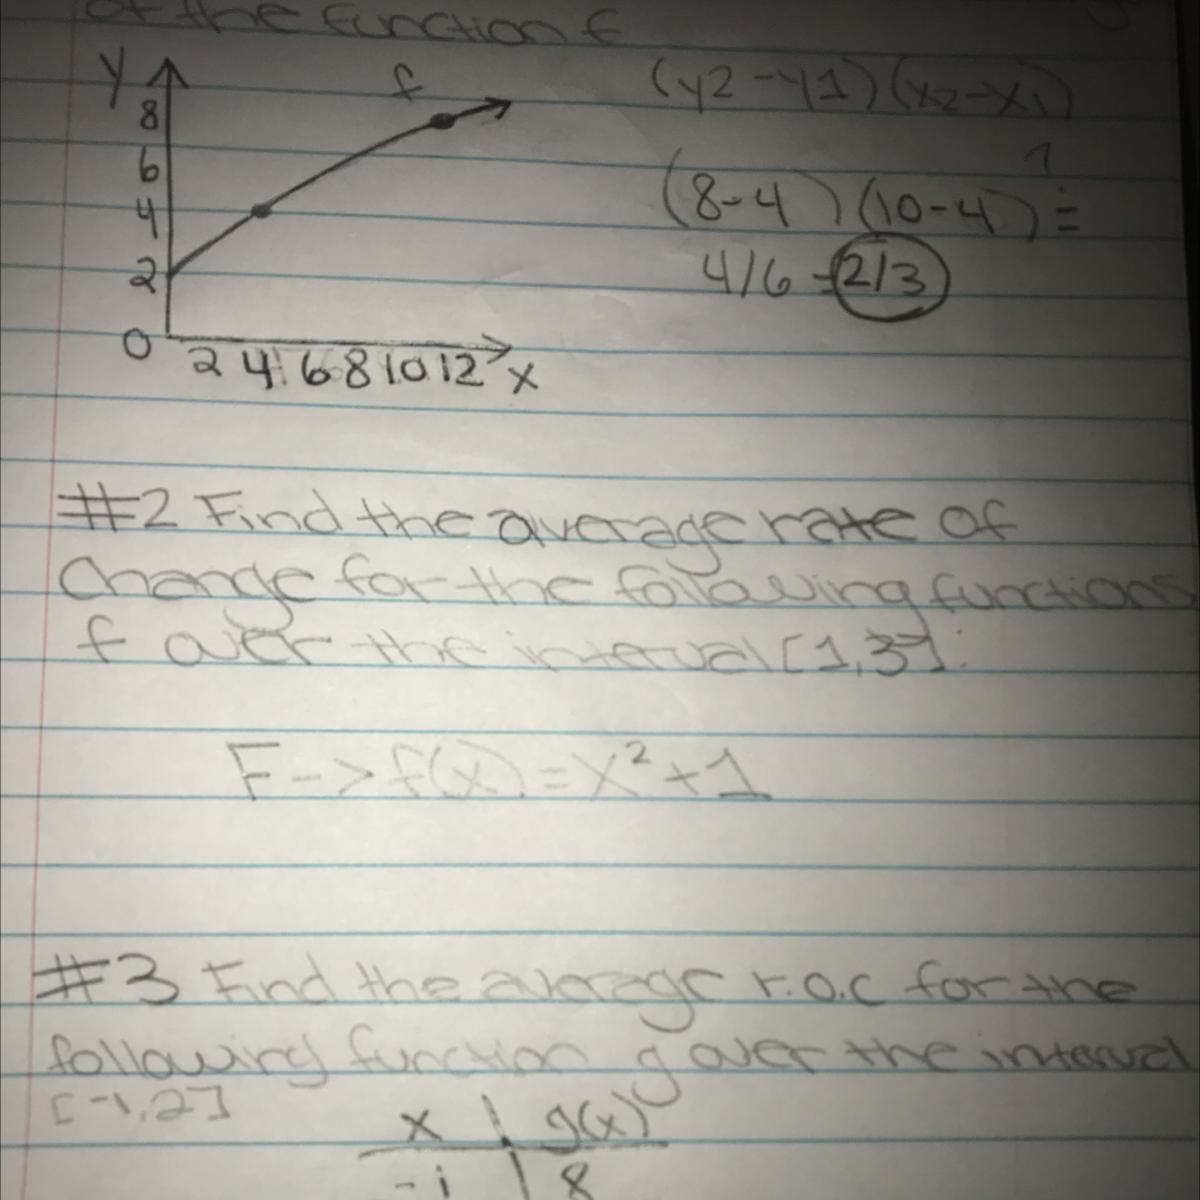 of the function f
y
f
8
6
4
2
0
2 4 6 8 10 12 x
(y2-y1)(x2-x1)
(8-4)(10-4) =
4/6 = 2/3
#2 Find the average rate of
Change for the following functions
f over the interval [1,3].
F -> f(x) = x² + 1
#3 Find the average r.o.c for the
following function g over the interval
[-1,2]
x | g(x)
-1 | 8